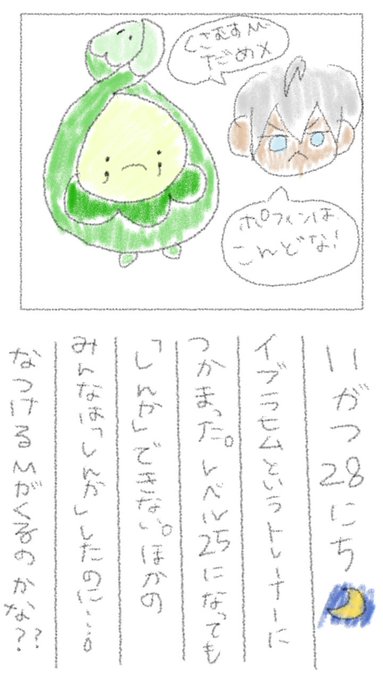 くさむすび
だめ×
ポフィンは
こんどな!
11がつ28にち
イブラヒムというトレーナーに
つかまった。レベル25になっても
「しんか」できない。ほかの
みんなは「しんか」したのに…。
なつけるひがくるのかな??